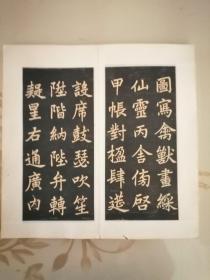 圖寫禽獸畫綵
仙靈丙舍傍啓
甲帳對楹肆筵
設席鼓瑟吹笙
陞階納陛弁轉
疑星右通廣內